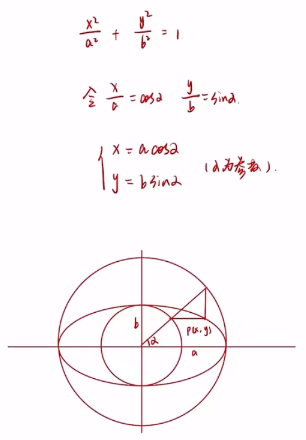 x²/a² + y²/b² = 1
令 x/a = cosα y/b = sinα.
{ x = a cosα
y = b sinα (α为参数).
b
P(x, y)
α
a